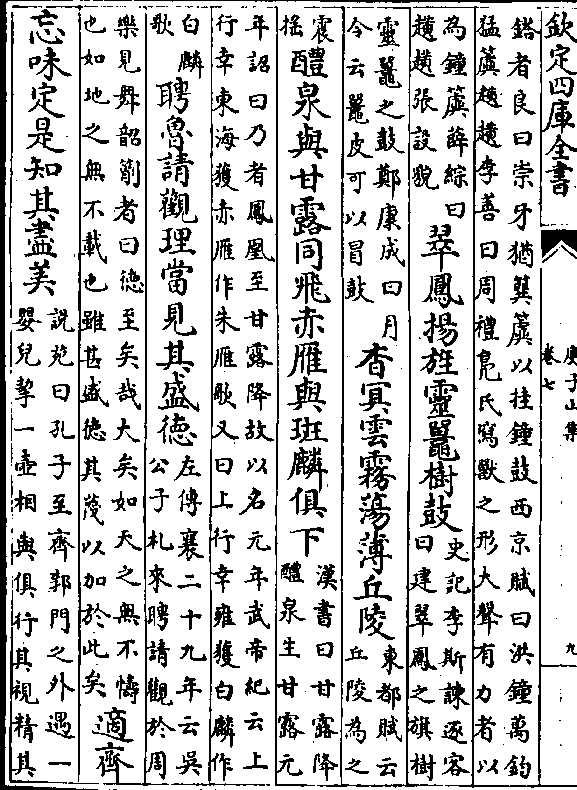 欽定四庫全書
庾子山集
卷七
九
鍇者良曰崇牙猶簨簴以挂鐘鼓西京賦曰洪鐘萬鈞
猛簴趪趪李善曰周禮鳧氏寫獸之形大聲有力者以
為鐘簴薛綜曰
趪趪張設貌
翠鳳揚旌靈鼉樹鼓
史記李斯諫逐客
曰建翠鳳之旗樹
靈鼉之鼓鄭康成曰月
令云鼉皮可以冒鼓
杳冥雲霧蕩薄丘陵
東都賦云
丘陵為之
震
搖
醴泉與甘露同飛赤雁與斑麟俱下
漢書曰甘露降
醴泉生甘露元
年詔曰乃者鳳凰至甘露降故以名元年武帝紀云上
行幸東海獲赤雁作朱雁歌又曰上行幸雍獲白麟作
白麟
歌
聘魯請觀理當見其盛德
左傳襄二十九年云吳
公子札來聘請觀於周
樂見舞韶箾者曰德至矣哉大矣如天之無不幬
也如地之無不載也雖甚盛德其蔑以加於此矣
適齊
忘味定是知其盡美
說苑曰孔子至齊郭門之外遇一
嬰兒挈一壺相與俱行其視精其